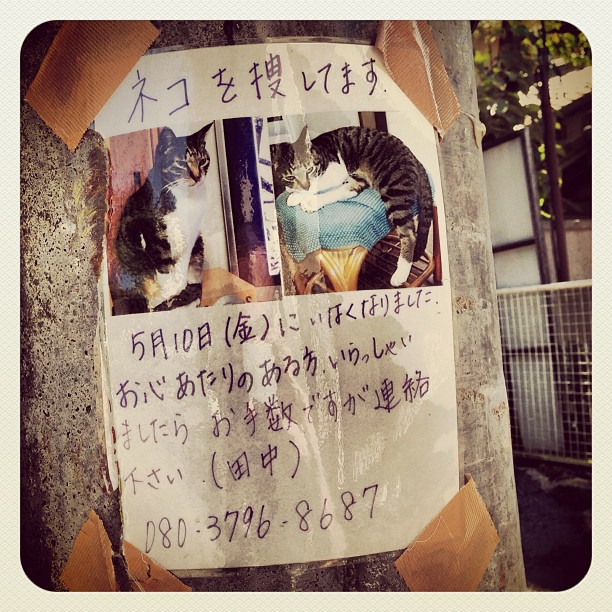 ネコを捜してます.
5月10日(金)にいなくなりました.
お心あたりのある方、いらっしゃい
ましたら お手数ですが連絡
下さい.(田中)
080-3796-8687